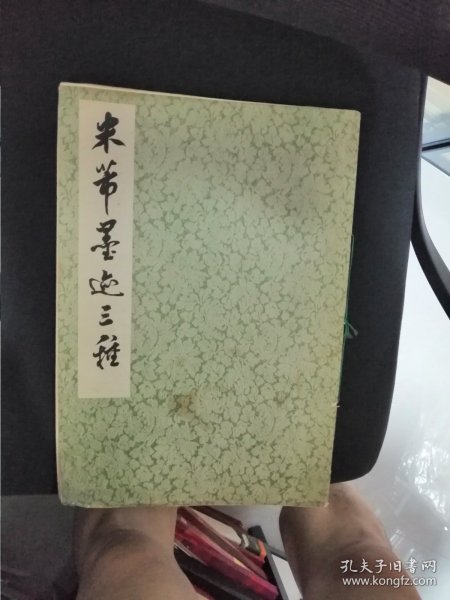 米芾墨迹三種
孔夫子旧书网
www.kongfz.com